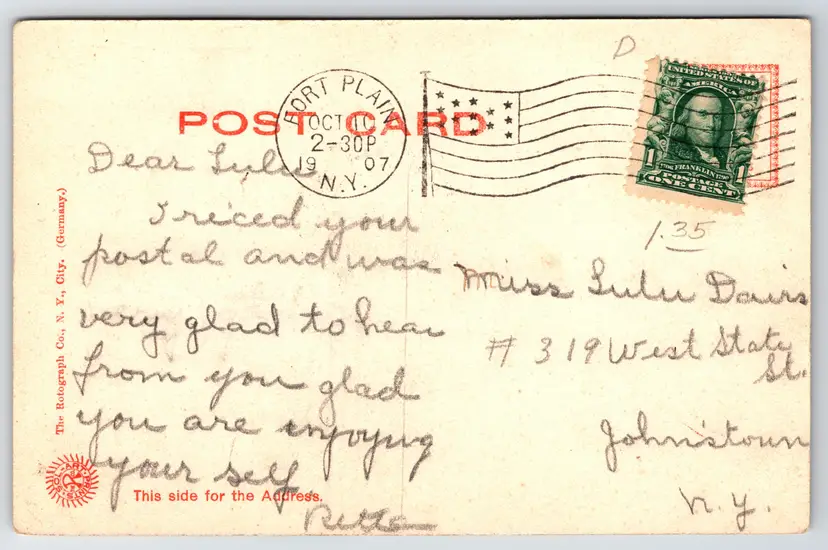 D
POST CARD
FORT PLAIN
OCT 10
2-30P
19 07
N.Y.
UNITED STATES OF
AMERICA
1 1
FRANKLIN
POSTAGE
ONE CENT
1.35
Dear Lulu
I riced your
postal and was
very glad to hear
from you glad
you are enjoying
your self
Miss Lulu Davis
# 319 West State
St.
Johnstown
N.Y.
The Rotograph Co., N. Y., City. (Germany.)
This side for the Address.